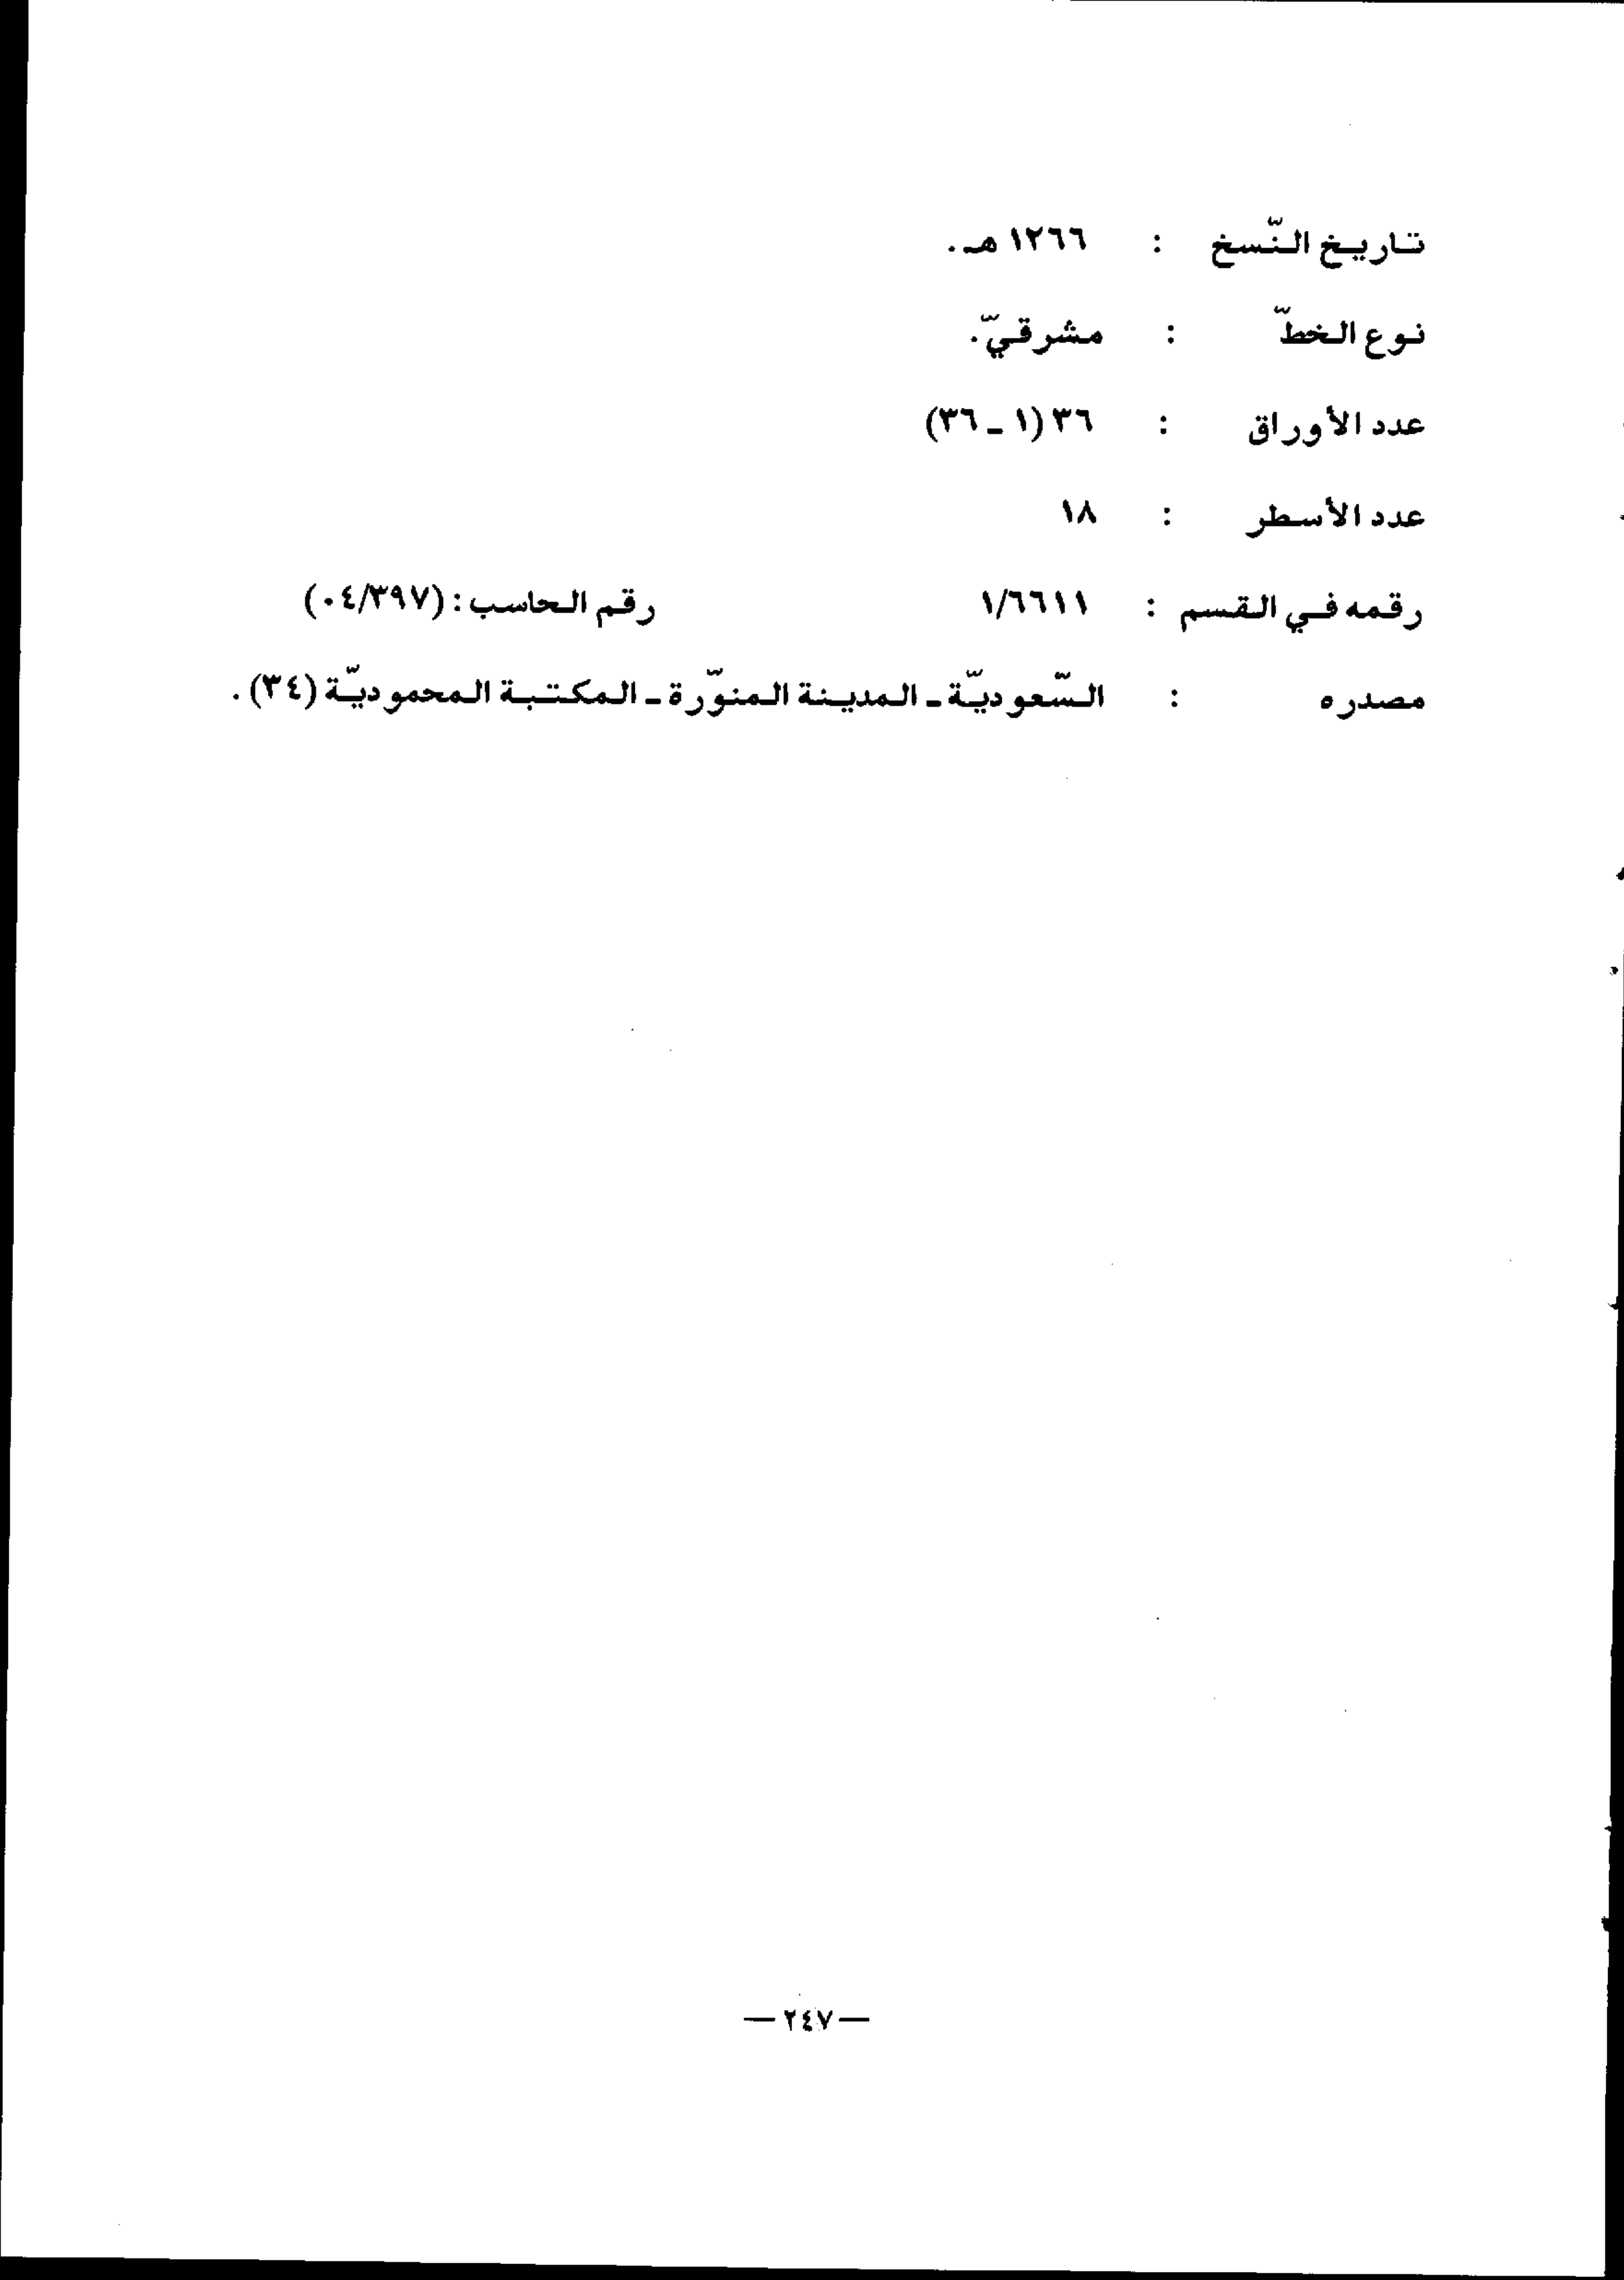 تاريخ النّسخ : ١٢٦٦ هـ .
نوع الخطّ : مشرقيّ .
عدد الأوراق : ٣٦ (١ ـ ٣٦)
عدد الأسطر : ١٨
رقمه في القسم : ١/٦٦١١ رقم الحاسب : (٠٤/٣٩٧)
مصدره : السّعوديّة ـ المدينة المنوّرة ـ المكتبة المحموديّة (٣٤) .
— ٢٤٧ —